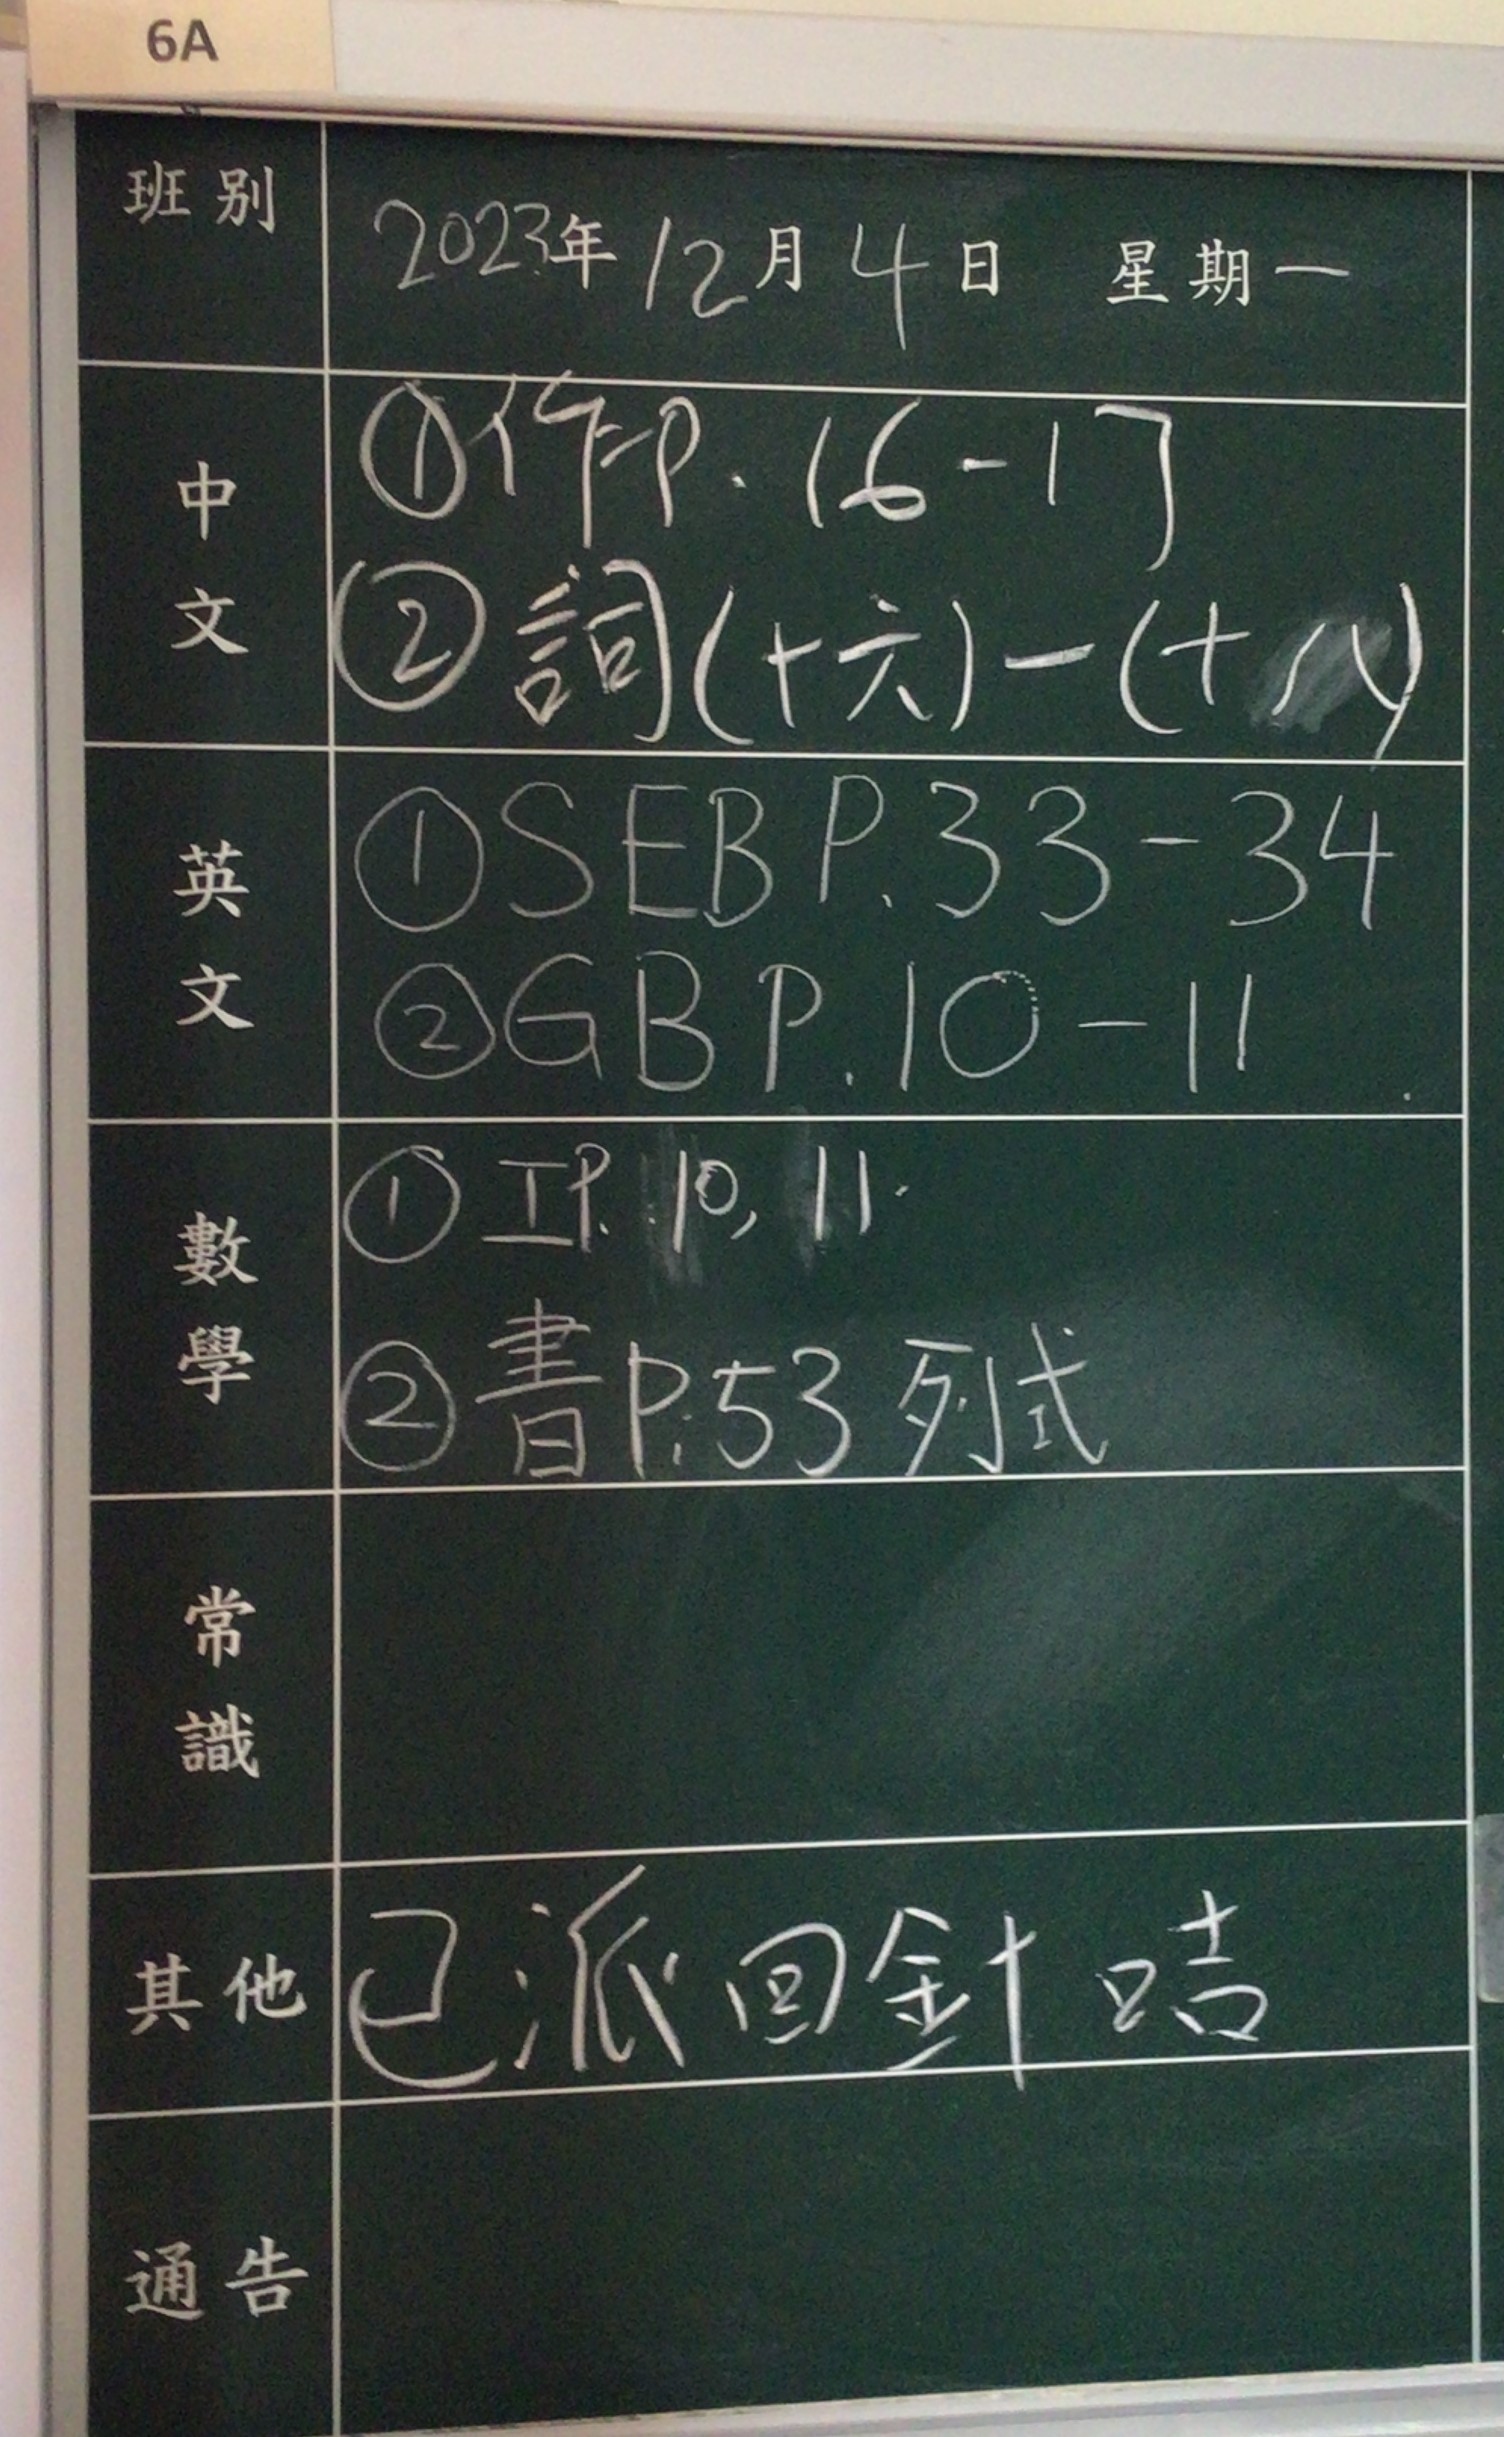 6A
班別
2023年12月4日 星期一
中文
①作P.16-17
②詞(十六)-(十八)
英文
①SEB P.33-34
②GB P.10-11
數學
①工P.10,11.
②書P.53列式
常識
其他
已派回針咭
通告